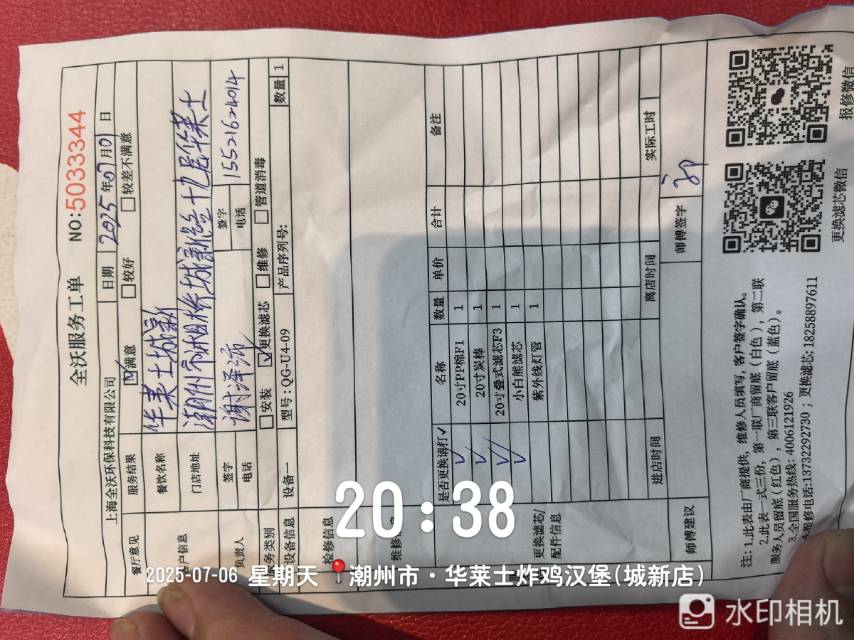 全沃服务工单
NO:5033344
上海全沃环保科技有限公司 日期 2025年07月01日
餐厅意见 服务结果 ☑满意 □较好 □较差不满意
客户信息 餐饮名称 华莱士城新
门店地址 潮州市湘桥城新路十九号华莱士
负责人 签字 签字
电话 电话 15521624014
服务类别 □安装 ☑更换滤芯 □维修 □管道消毒
设备信息 设备一 型号:QG-U4-09 产品序列号: 数量 1
检修信息
更换滤芯/配件信息
是否更换请打√ 名称 数量 单价 合计 备注
√ 20寸PP棉F1 1
√ 20寸炭棒 1
√ 20寸叠式滤芯F3 1
√ 小白熊滤芯 1
紫外线灯管 1
进店时间 离店时间 实际工时
师傅建议 师傅签字
注:1.此表由厂商提供,维修人员填写,客户签字确认。
2.此表一式三份,第一联厂商留底(白色),第二联
服务人员留底(红色),第三联客户留底(蓝色)。
3.全国服务热线:4006121926
4.报修电话:13732292730;更换滤芯:18258897611
更换滤芯微信 报修微信
20:38
2025-07-06 星期天 潮州市·华莱士炸鸡汉堡(城新店)
水印相机